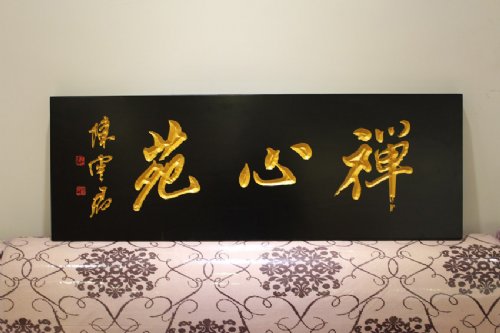 禪心苑
陳雲君